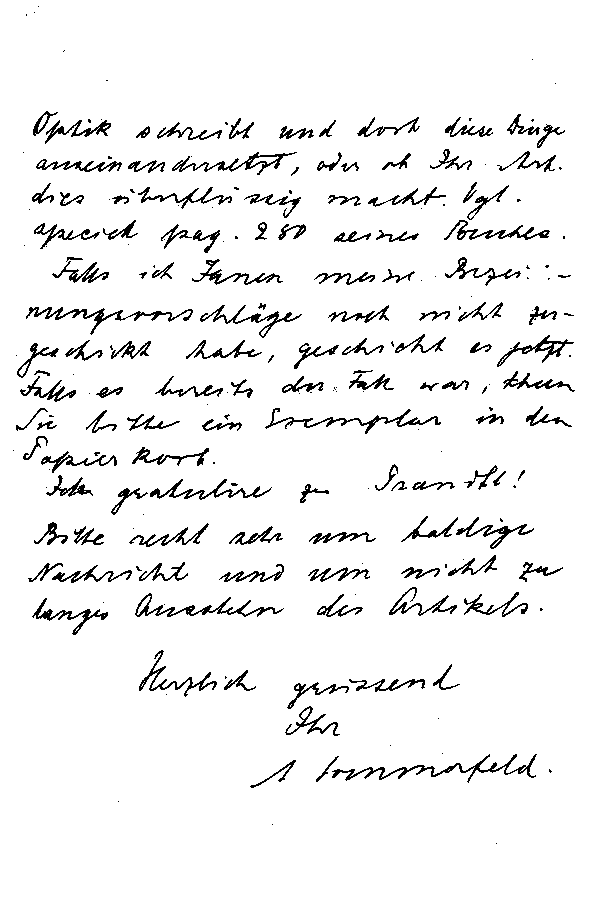 Optik schreibt und dort diese Dinge
auseinandersetzt, oder ob Ihr Art.
dies überflüssig macht. Vgl.
speciell pag. 280 seines Buches.
Falls ich Ihnen meine Bezei-
nungsvorschläge noch nicht zu-
geschickt habe, geschieht es jetzt.
Falls es bereits der Fall war, thun
Sie bitte ein Exemplar in den
Papierkorb.
Ich gratulire zu Prandtl!
Bitte recht sehr um baldige
Nachricht und um nicht zu
langes Ausstehn des Artikels.
Herzlich grüssend
Ihr
A Sommerfeld.